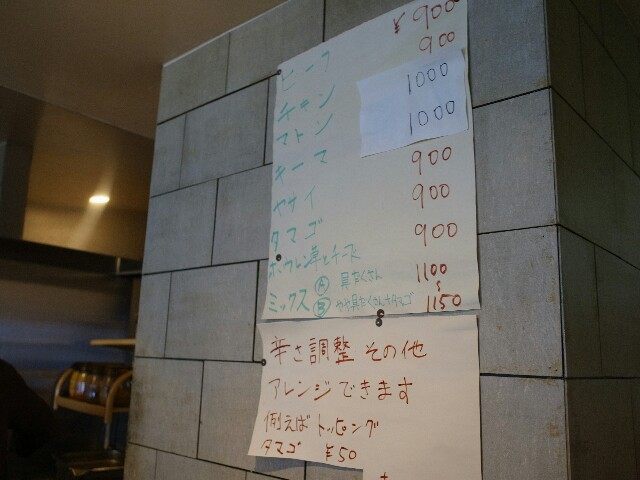 ビーフ ¥900
チキン 900
マトン 1000
キーマ 1000
ヤサイ 900
タマゴ 900
ホウレン草とチーズ 900
Ⓐ 具だくさん 1100
ミックス Ⓑ やや具だくさん+タマゴ 1150
辛さ調整 その他
アレンジできます
例えば トッピング
タマゴ ¥50